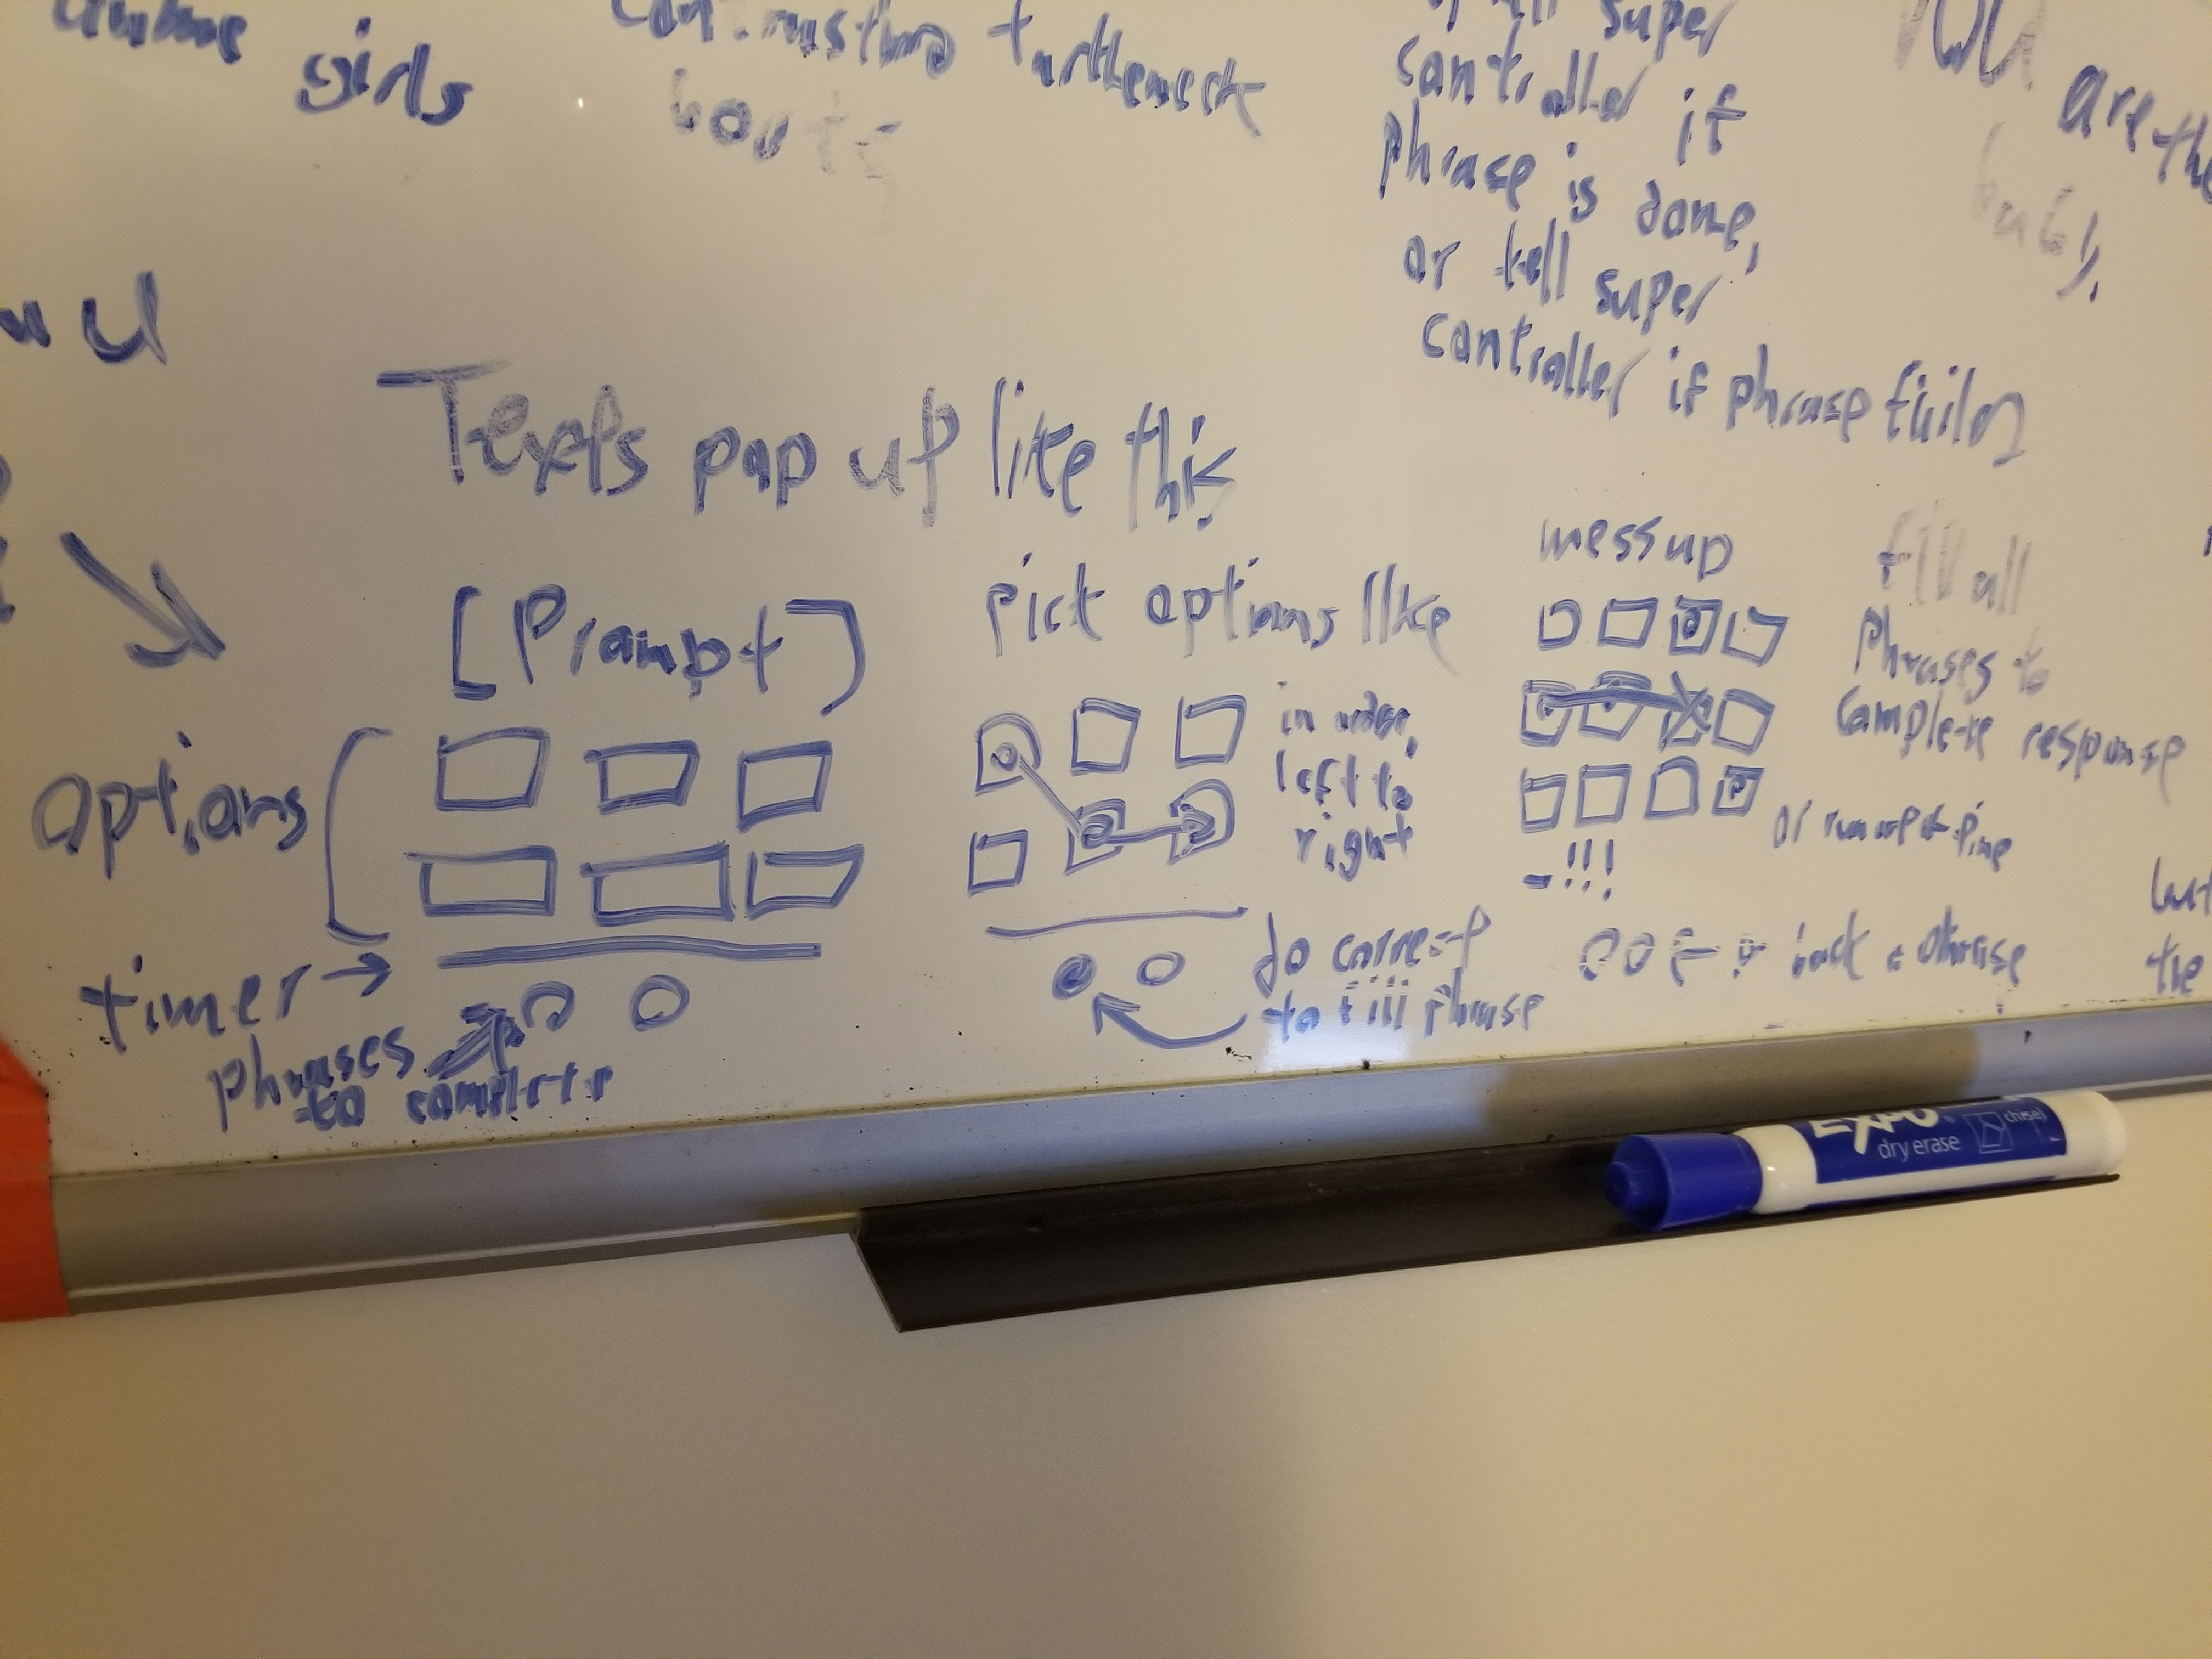 girls
turtleneck
super
controller if
phrase is done,
or tell super
controller if phrase fails
are the
Texts pop up like this
[Prompt]
options
timer →
phrases
to complete
pick options like
in order,
left to
right
do correct
to fill phrase
mess up
-!!!
back a phrase
fill all
phrases to
complete response
or run out of time
the
EXPO
dry erase
chisel